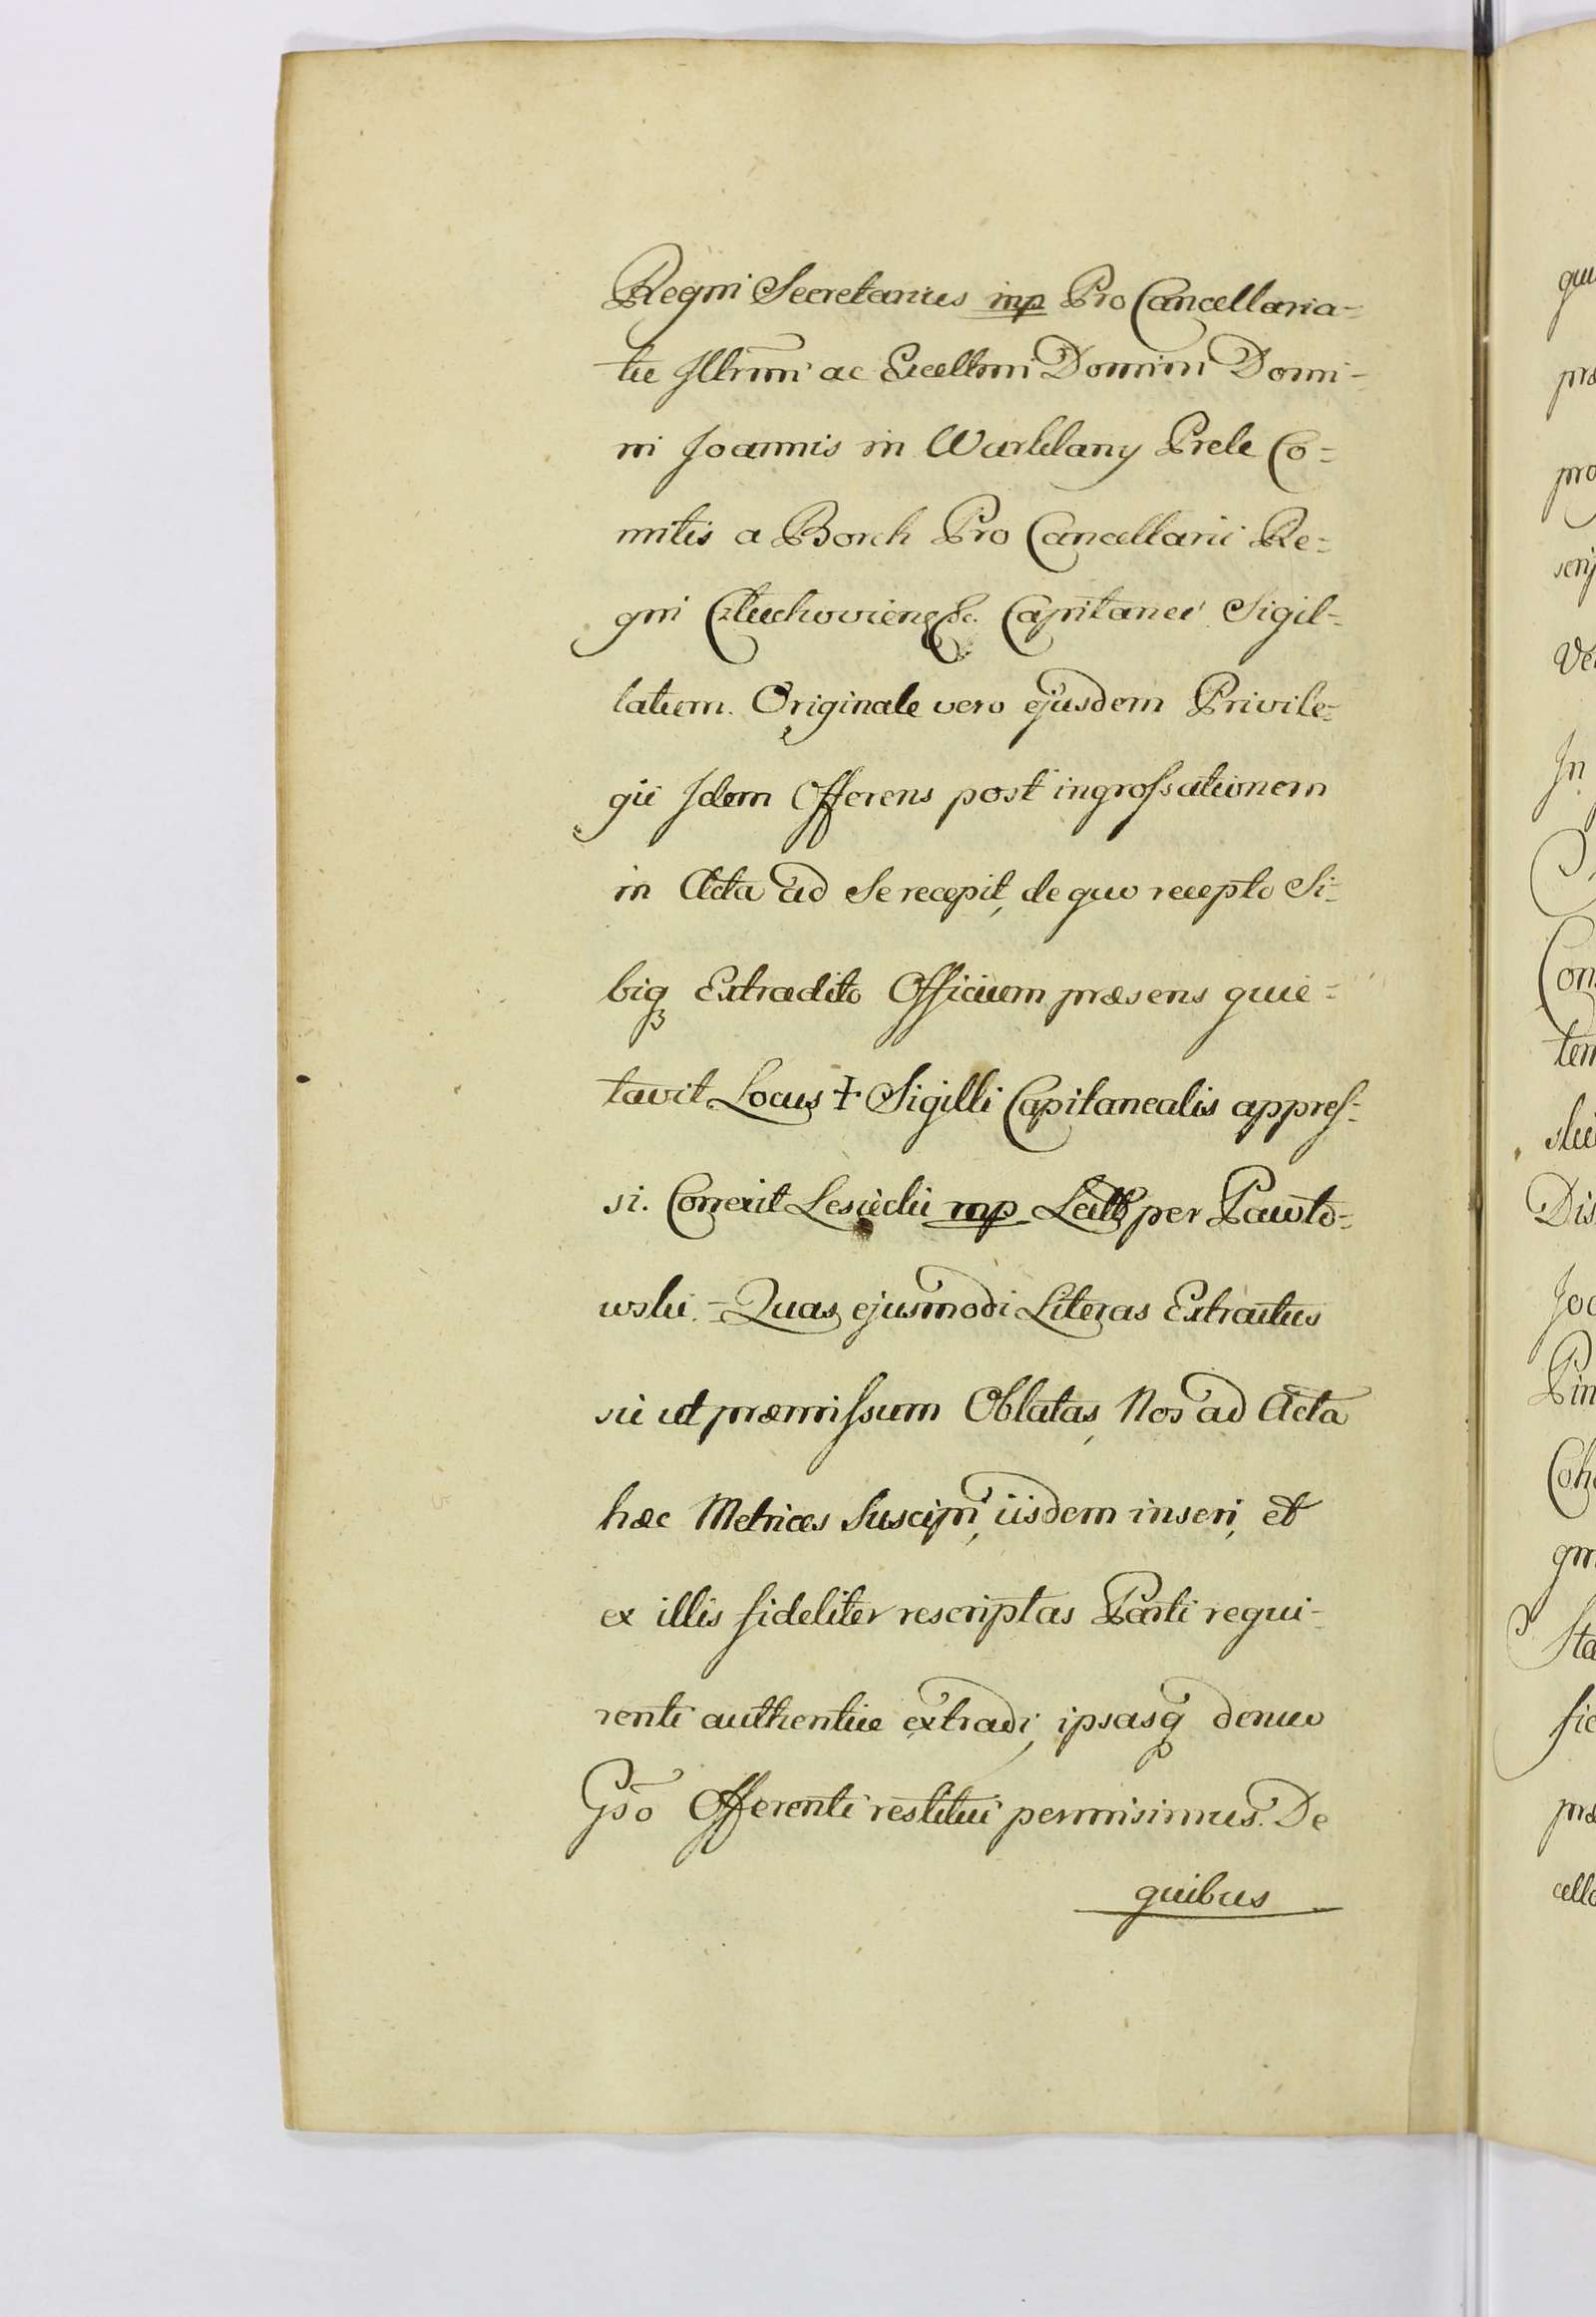 Regni Secretarius mp Pro Cancellaria-
tu Illrmi ac Excellmi Domini Domi-
ni Joannis in Warklany Prele Co-
mitis a Borch Pro Cancellarii Re-
gni Człuchovien &c. Capitanei Sigil-
latum. Originale vero ejusdem Privile-
gii Idem Offerens post ingrossationem
in Acta ad Se recepit, de quo recepto Si-
biq Extradito Officium præsens quie-
tavit. Locus ‡ Sigilli Capitanealis appres-
si. Correxit mp Lectt per Pawło-
wski. - Quas ejusmodi Literas Extractus
ut præmissum Oblatas, Nos ad Acta
hæc Metrices Suscipi, iisdem inseri, et
ex illis fideliter rescriptas Parti requi-
renti authentice extradi, ipsasq denuo
Gso Offerenti restitui permisimus. De
quibus